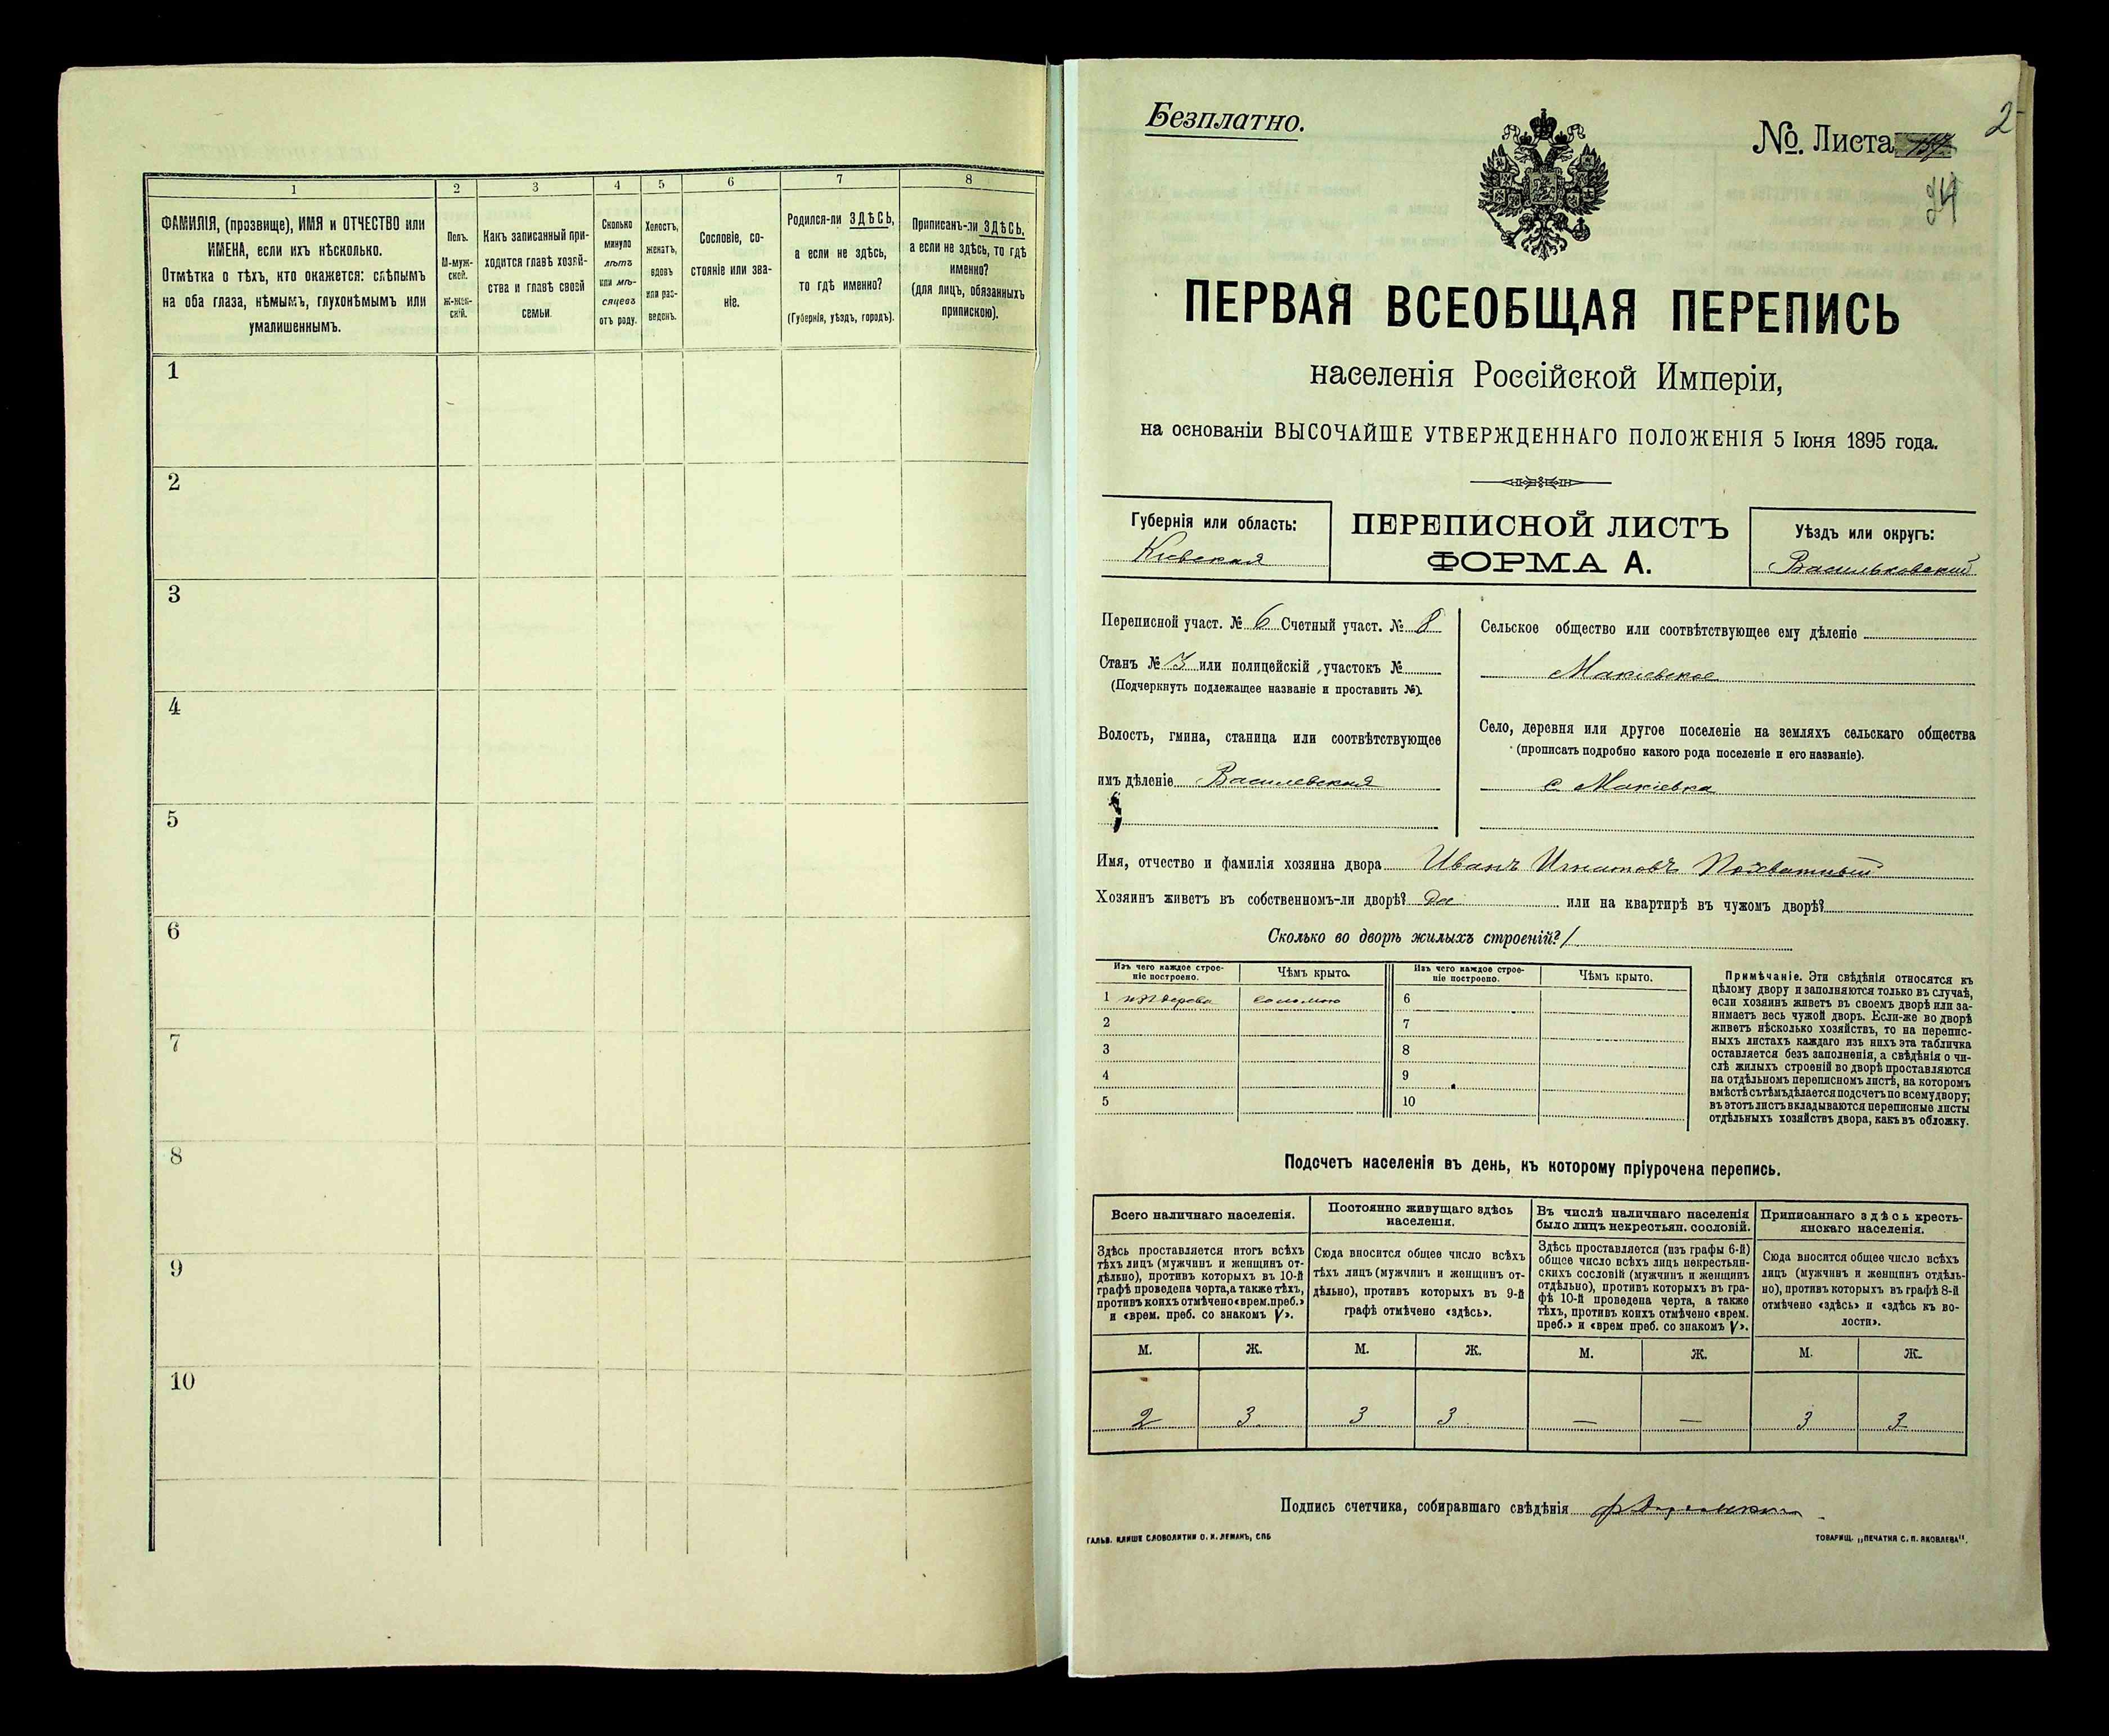 1 2 3 4 5 6 7 8
ФАМИЛІЯ, (прозвище), ИМЯ и ОТЧЕСТВО или
ИМЕНА, если ихъ нѣсколько.
Отмѣтка о тѣхъ, кто окажется: слѣпымъ
на оба глаза, нѣмымъ, глухонѣмымъ или
умалишеннымъ.
Полъ.
М-муж-
ской.
ж-жен-
скій.
Какъ записанный при-
ходится главѣ хозяй-
ства и главѣ своей
семьи.
Сколько
минуло
лѣтъ
или мѣ-
сяцевъ
отъ роду.
Холостъ,
женатъ,
вдовъ
или раз-
веденъ.
Сословіе, со-
стояніе или зва-
ніе.
Родился-ли ЗДѢСЬ,
а если не здѣсь,
то гдѣ именно?
(Губернія, уѣздъ, городъ).
Приписанъ-ли ЗДѢСЬ,
а если не здѣсь, то гдѣ
именно?
(для лицъ, обязанныхъ
припискою).
1
2
3
4
5
6
7
8
9
10
Безплатно.
№. Листа
2
24
ПЕРВАЯ ВСЕОБЩАЯ ПЕРЕПИСЬ
населенія Россійской Имперіи,
на основаніи ВЫСОЧАЙШЕ УТВЕРЖДЕННАГО ПОЛОЖЕНІЯ 5 Іюня 1895 года.
Губернія или область:
Кіевская
ПЕРЕПИСНОЙ ЛИСТЪ
ФОРМА А.
Уѣздъ или округъ:
Васильковскій
Переписной участ. № 6 Счетный участ. № 8
Станъ № 3 или полицейскій участокъ №
(Подчеркнуть подлежащее названіе и проставить №).
Волость, гмина, станица или соотвѣтствующее
имъ дѣленіе Василевская
Сельское общество или соотвѣтствующее ему дѣленіе
Макіевское
Село, деревня или другое поселеніе на земляхъ сельскаго общества
(прописать подробно какого рода поселеніе и его названіе).
с Макіевка
Имя, отчество и фамилія хозяина двора Иванъ Игнатовъ
Хозяинъ живетъ въ собственномъ-ли дворѣ? да или на квартирѣ въ чужомъ дворѣ?
Сколько во дворѣ жилыхъ строеній? 1
Изъ чего каждое строе-
ніе построено.
Чѣмъ крыто.
Изъ чего каждое строе-
ніе построено.
Чѣмъ крыто.
1 изъ дерева соломою 6
2 7
3 8
4 9
5 10
Примѣчаніе. Эти свѣдѣнія относятся къ
цѣлому двору и заполняются только въ случаѣ,
если хозяинъ живетъ въ своемъ дворѣ или за-
нимаетъ весь чужой дворъ. Если-же во дворѣ
живетъ нѣсколько хозяйствъ, то на перепис-
ныхъ листахъ каждаго изъ нихъ эта табличка
оставляется безъ заполненія, а свѣдѣнія о чи-
слѣ жилыхъ строеній во дворѣ проставляются
на отдѣльномъ переписномъ листѣ, на которомъ
вмѣстѣ съ тѣмъ дѣлается подсчетъ по всему двору;
въ этотъ листъ вкладываются переписные листы
отдѣльныхъ хозяйствъ двора, какъ въ обложку.
Подсчетъ населенія въ день, къ которому пріурочена перепись.
Всего наличнаго населенія.
Здѣсь проставляется итогъ всѣхъ
тѣхъ лицъ (мужчинъ и женщинъ от-
дѣльно), противъ которыхъ въ 10-й
графѣ проведена черта, а также тѣхъ,
противъ коихъ отмѣчено «врем. преб.»
и «врем. преб. со знакомъ V».
Постоянно живущаго здѣсь
населенія.
Сюда вносится общее число всѣхъ
тѣхъ лицъ (мужчинъ и женщинъ от-
дѣльно), противъ которыхъ въ 9-й
графѣ отмѣчено «здѣсь».
Въ числѣ наличнаго населенія
было лицъ некрестьян. сословій.
Здѣсь проставляется (изъ графы 6-й)
общее число всѣхъ лицъ некрестьян-
скихъ сословій (мужчинъ и женщинъ
отдѣльно), противъ которыхъ въ гра-
фѣ 10-й проведена черта, а также
тѣхъ, противъ коихъ отмѣчено «врем.
преб.» и «врем преб. со знакомъ V».
Приписаннаго здѣсь кресть-
янскаго населенія.
Сюда вносится общее число всѣхъ
лицъ (мужчинъ и женщинъ отдѣль-
но), противъ которыхъ въ графѣ 8-й
отмѣчено «здѣсь» и «здѣсь къ во-
лости».
М. Ж. М. Ж. М. Ж. М. Ж.
2 3 3 3 — — 3 3
Подпись счетчика, собиравшаго свѣдѣнія
ГАЛЬВ. КЛИШЕ СЛОВОЛИТНИ О. И. ЛЕМАНЪ, СПБ
ТОВАРИЩ. „ПЕЧАТНЯ С. П. ЯКОВЛЕВА".